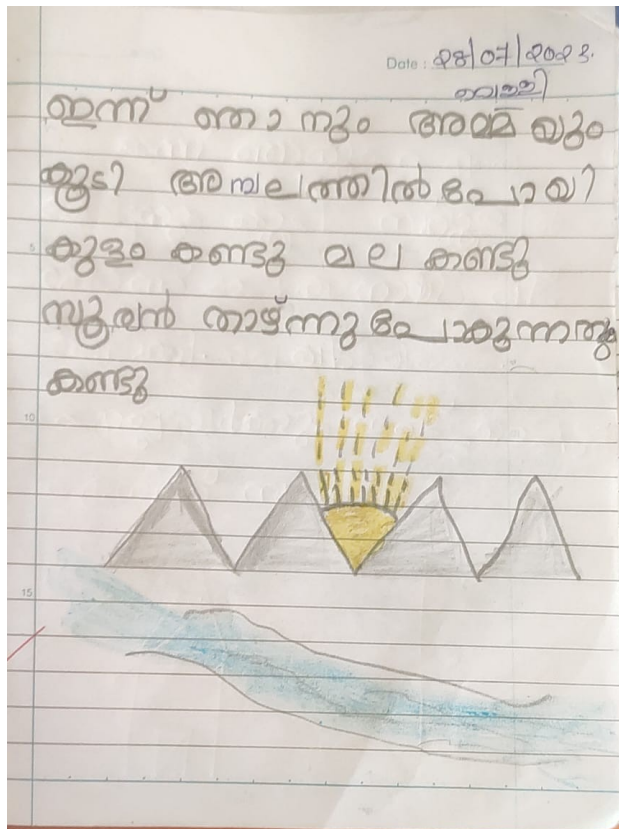 Date : 28/07/2023.
വെള്ളി
ഇന്ന് ഞാനും അമ്മയും
കൂടി അമ്പലത്തിൽ പോയി
5
കുളം കണ്ടു മല കണ്ടു
സൂര്യൻ താഴ്ന്നു പോകുന്നതും
കണ്ടു
10
15